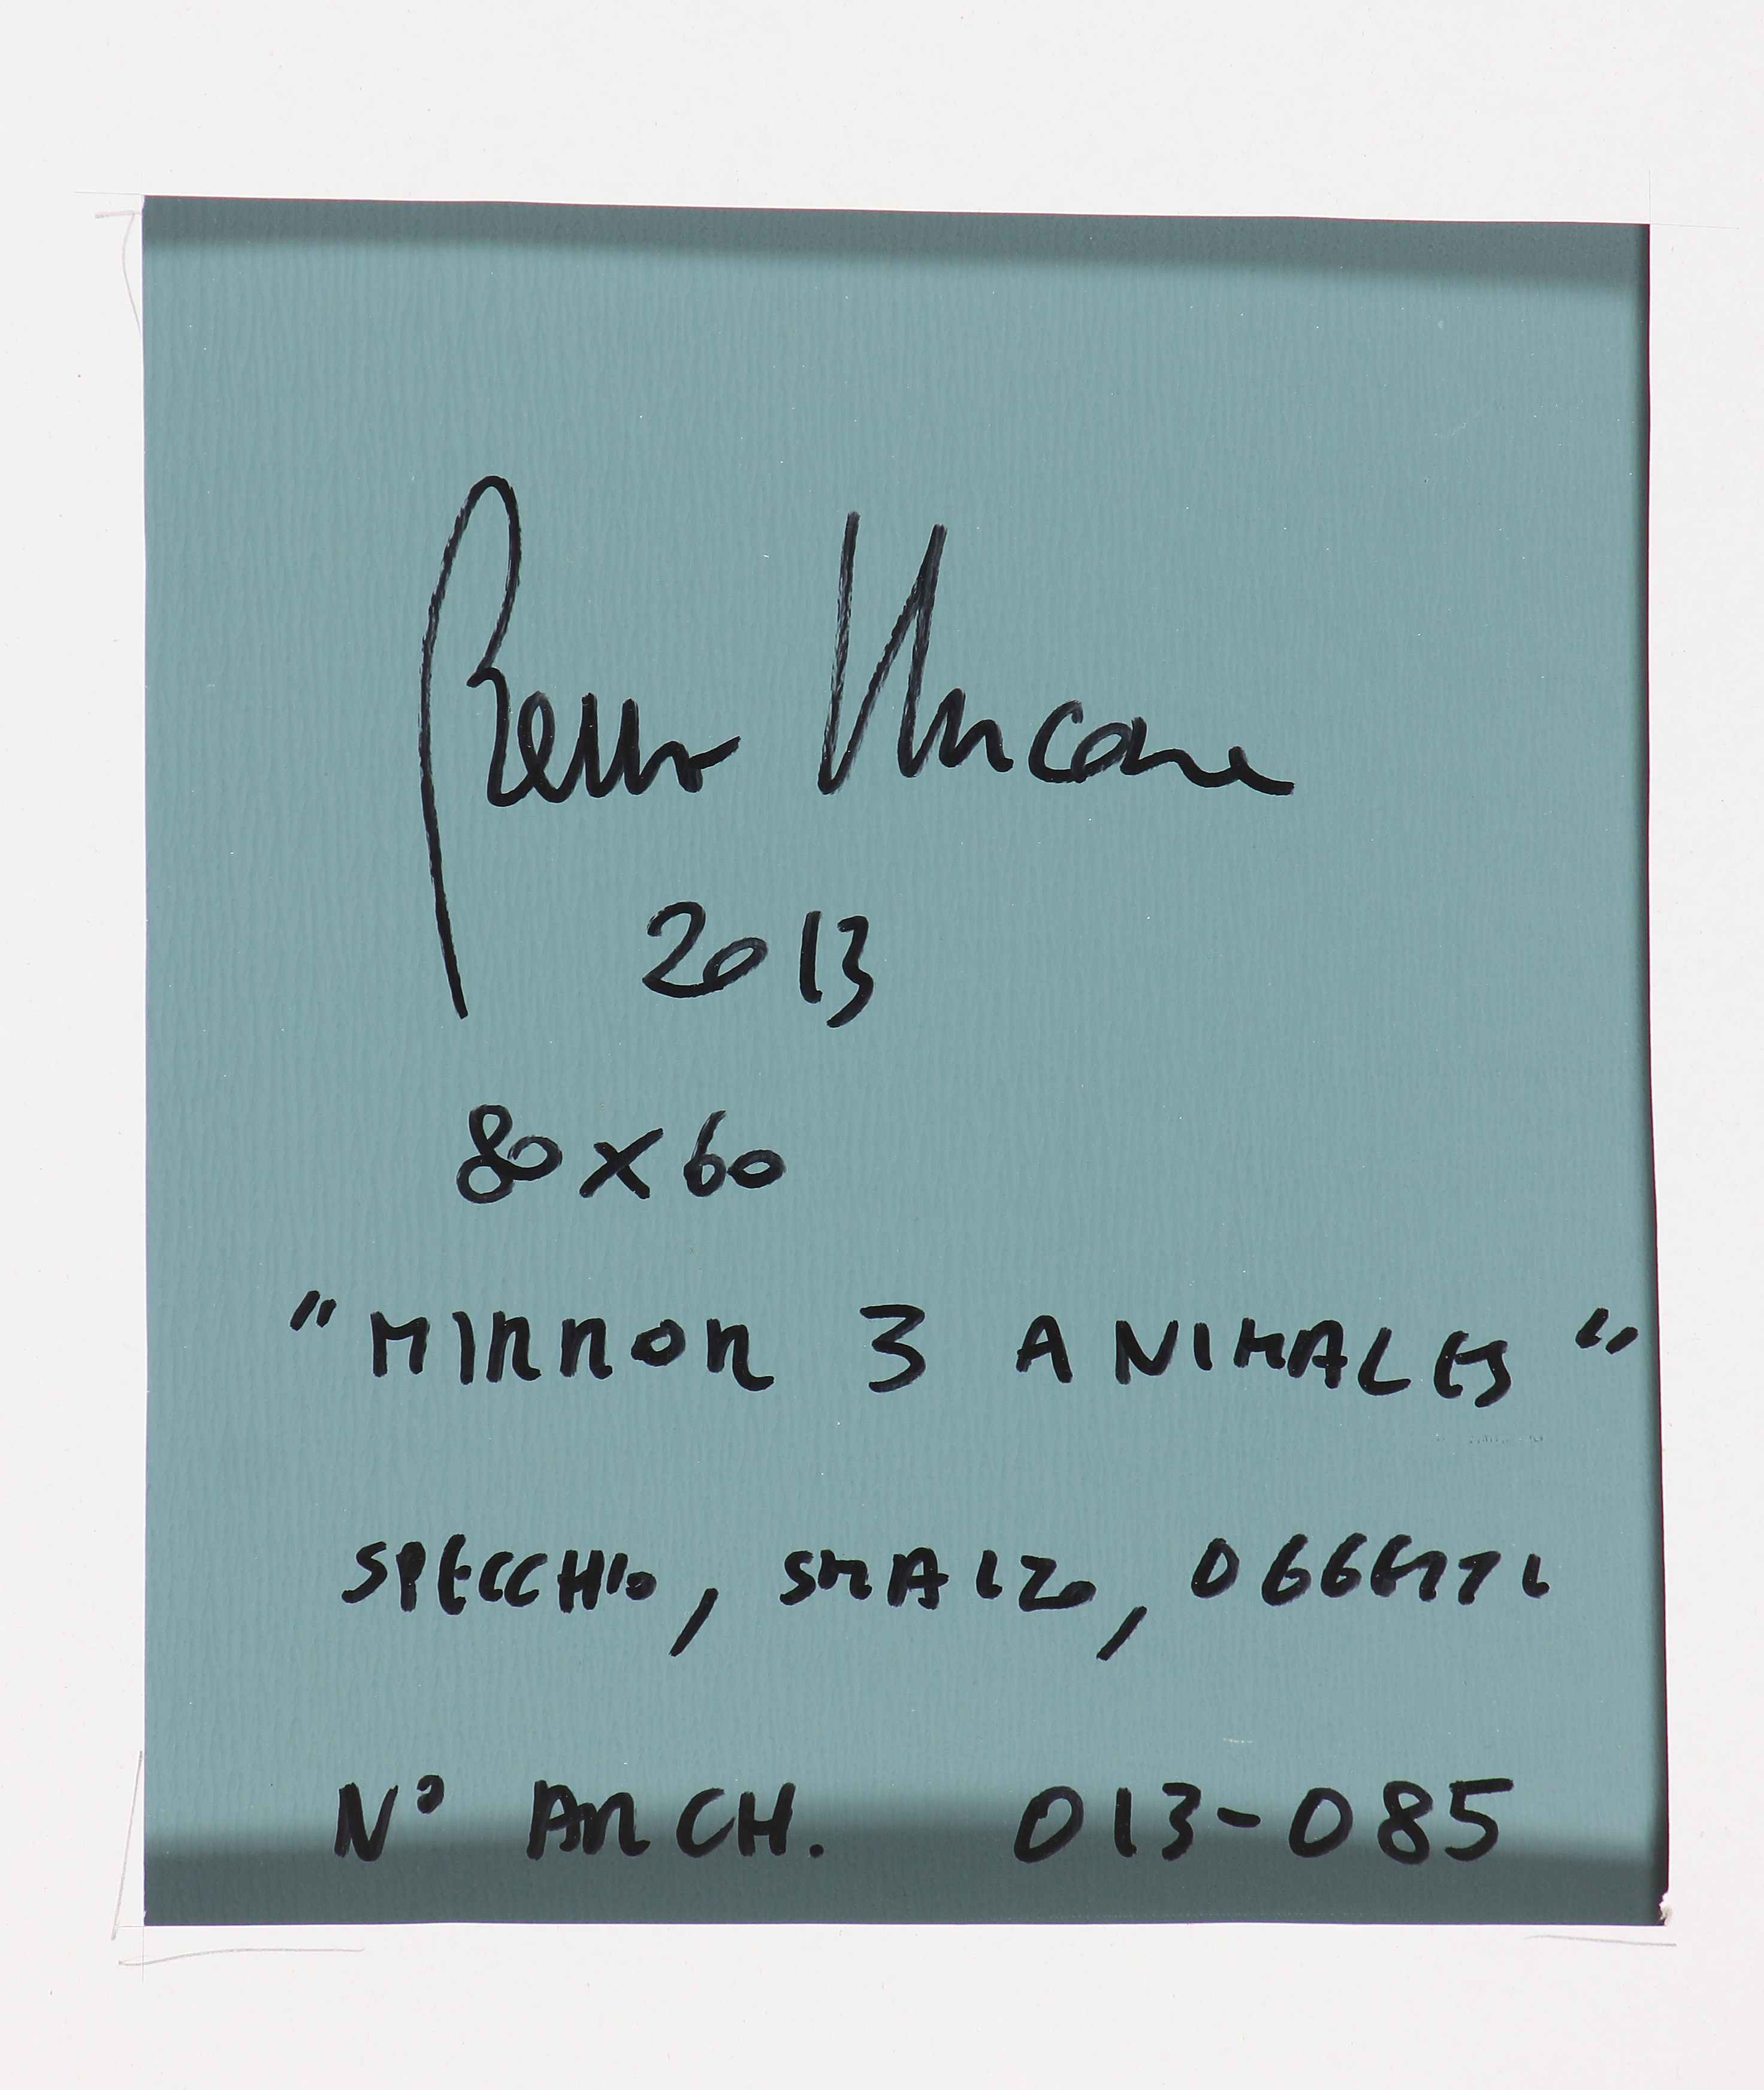 2013
80x60
"MIRROR 3 ANIMALES"
SPECCHIO, SMALTO, OGGETTI
N° ARCH. 013-085